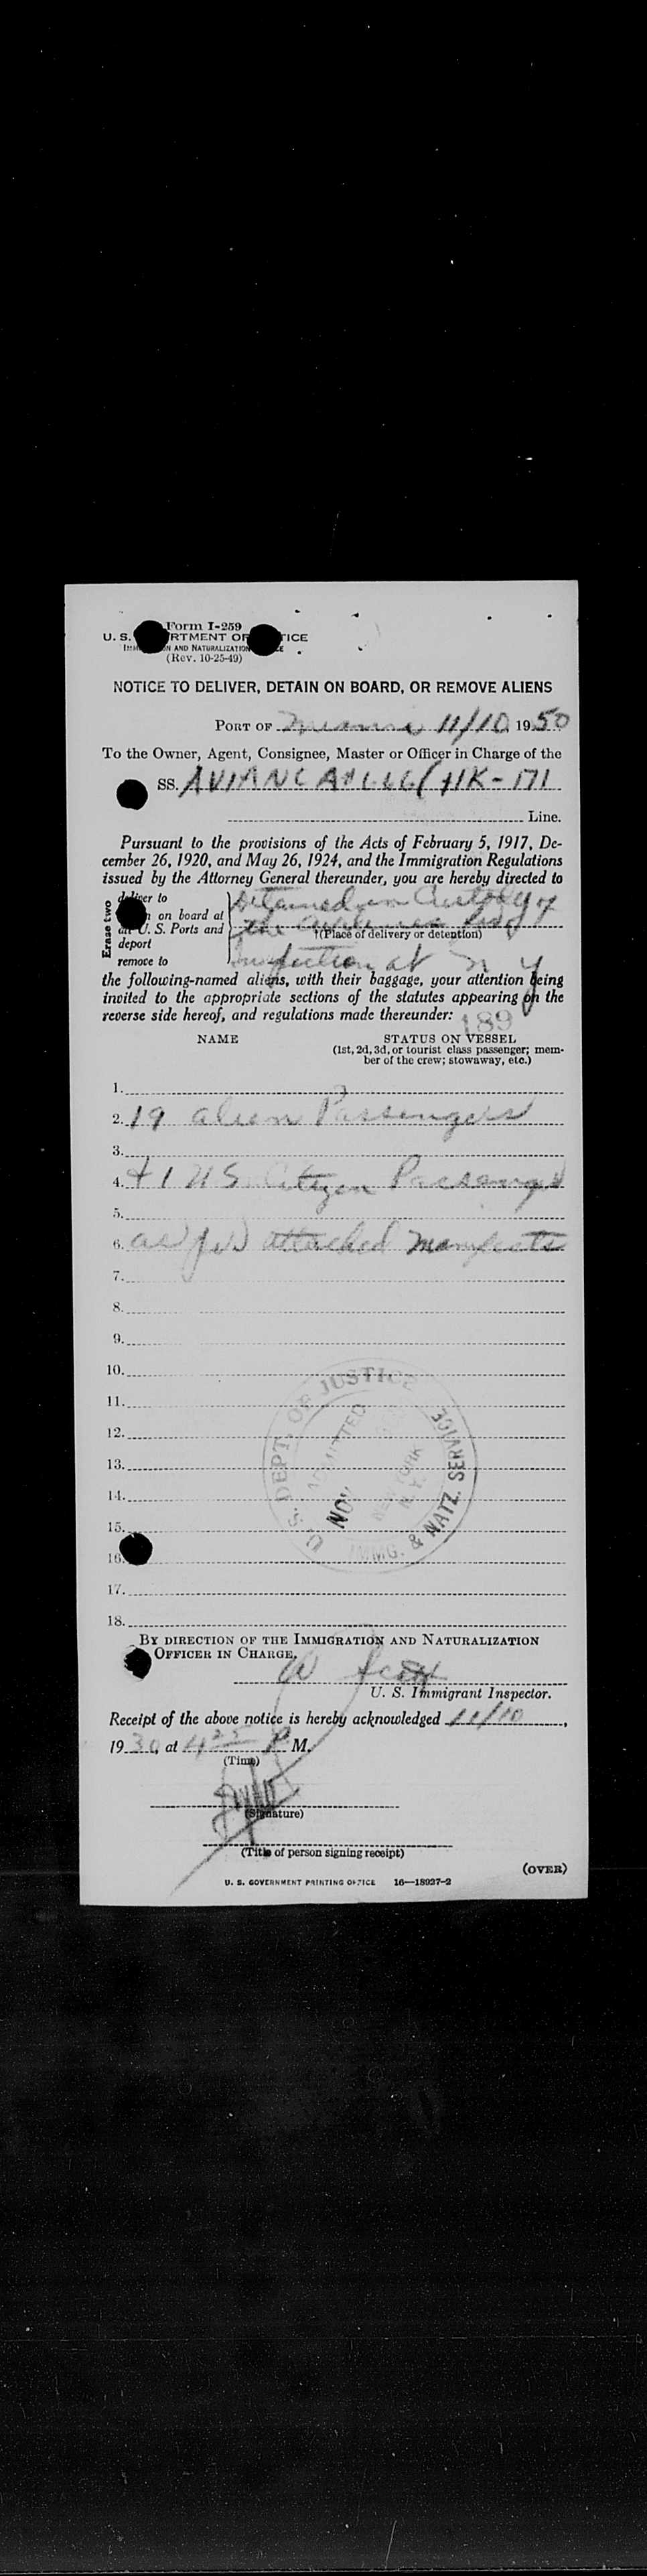 Form I-259
U. S. RTMENT OF TICE
N AND NATURALIZATION E
(Rev. 10-25-49)
NOTICE TO DELIVER, DETAIN ON BOARD, OR REMOVE ALIENS
PORT OF Miami 11/10, 1950
To the Owner, Agent, Consignee, Master or Officer in Charge of the
SS. AVIANCA HK-171
Line.
Pursuant to the provisions of the Acts of February 5, 1917, De-
cember 26, 1920, and May 26, 1924, and the Immigration Regulations
issued by the Attorney General thereunder, you are hereby directed to
Erase two
deliver to
on board at
all U. S. Ports and
deport
remove to
Detained in Custody of
the
†(Place of delivery or detention)
Inspection at N Y
the following-named aliens, with their baggage, your attention being
invited to the appropriate sections of the statutes appearing on the
reverse side hereof, and regulations made thereunder:
189
NAME STATUS ON VESSEL
(1st, 2d, 3d, or tourist class passenger; mem-
ber of the crew; stowaway, etc.)
1.
2. 19 alien Passengers
3.
4. + 1 US Citizen Passenger
5.
6. as per attached manifests
7.
8.
9.
10.
11.
12.
13.
14.
15.
16.
17.
18.
U. S. DEPT. OF JUSTICE
ADMITTED
NOV
NEW YORK
N. Y.
IMMG. & NATZ. SERVICE
BY DIRECTION OF THE IMMIGRATION AND NATURALIZATION
OFFICER IN CHARGE,
W Scott
U. S. Immigrant Inspector.
Receipt of the above notice is hereby acknowledged 11/10,
1950, at 4 25 P M.
(Time)
(Signature)
(Title of person signing receipt)
(OVER)
U. S. GOVERNMENT PRINTING OFFICE 16—18927-2